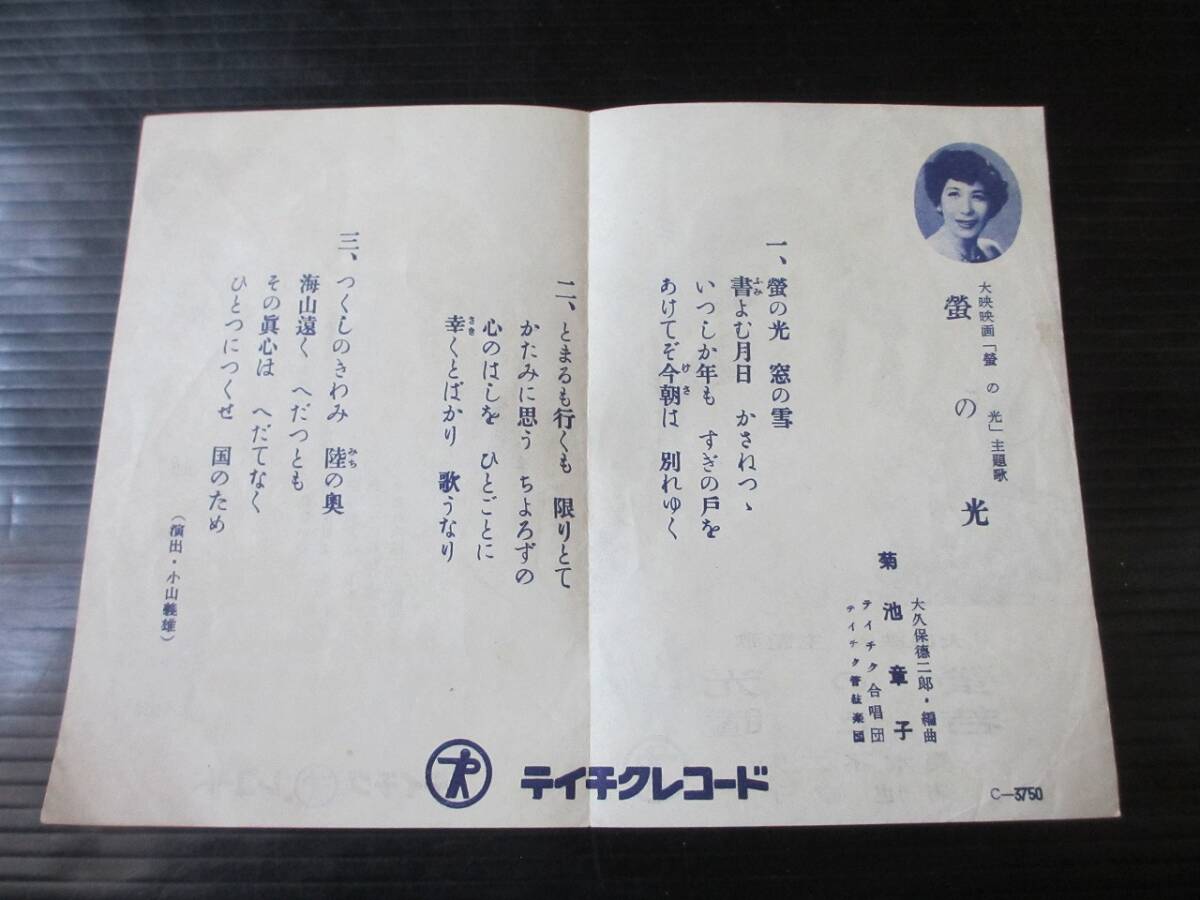 大映映画「螢の光」主題歌
螢の光
大久保德二郎・編曲
菊池章子
テイチク合唱団
テイチク管絃楽団
一、螢の光　窓の雪
書よむ月日　かさねつゝ
ふみ
いつしか年も　すぎの戸を
あけてぞ今朝は　別れゆく
けさ
二、とまるも行くも　限りとて
かたみに思う　ちよろずの
心のはしを　ひとごとに
幸くとばかり　歌うなり
さき
三、つくしのきわみ　陸の奥
みち
海山遠く　へだつとも
その眞心は　へだてなく
ひとつにつくせ　国のため
（演出・小山義雄）
テイチクレコード
C—3750